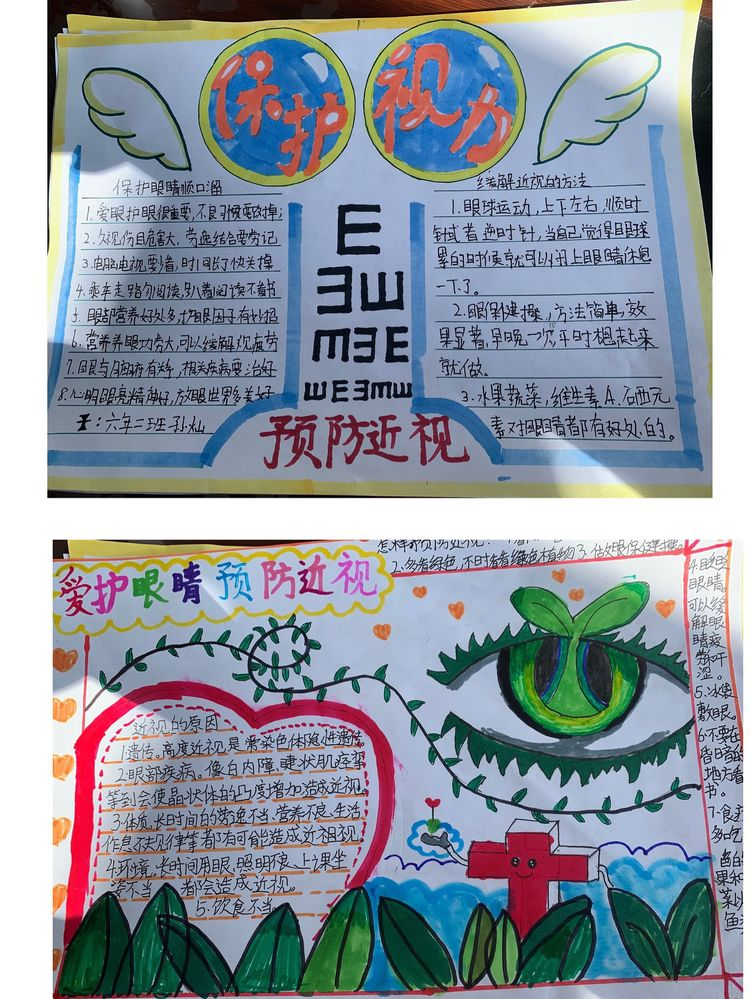 保护视力
保护眼睛顺口溜
1.爱眼护眼很重要,不良习惯要改掉;
2.久视伤目危害大,劳逸结合要劳记
3.电脑电视要少看,时间长了快关掉
4.乘车走路勿阅读,趴着阅读不看书
5.眼部营养好处多,护眼因子有妙招
6.营养养眼功劳大,可以缓解视疲劳
7.同眼与
8.心明眼亮精神好,放眼世界多美好
六年二班孙灿
缓解近视的方法
1.眼球运动,上下左右,顺时
针或者逆时针,当自己觉得眼球
累的时候就可以闭上眼睛休息
一下了。
2.眼保健操,方法简单,效
果显著,早晚一次平时想起来
就做。
3.水果蔬菜,维生素A.石西元
素对眼睛都有好处的。
E
ƎШ
mƎE
ШEƎmШ
预防近视
爱护眼睛预防近视
怎样预防近视?
2.多看绿色,不时看看绿色植物3.做眼保健操。
4.
眼睛。
可以缓
解眼
睛疲
劳和干
涩。
5.冰袋
敷眼。
6.不要在
昏暗的
地方看
书。
7.食疗
多吃
鱼
果和
菜
鱼
近视的原因
1遗传。高度近视是常染色体隐性遗传
2眼部疾病。像白内障.睫状肌痉挛
等到会使晶状体的凸度增加造成近视。
3.体质。长时间的劳逸不当.营养不良.生活
作息不夫见律等都有可能造成近视。
4.环境。长时间用眼.照明不良.上课坐
姿不当 都会造成近视。
5.饮食不当。